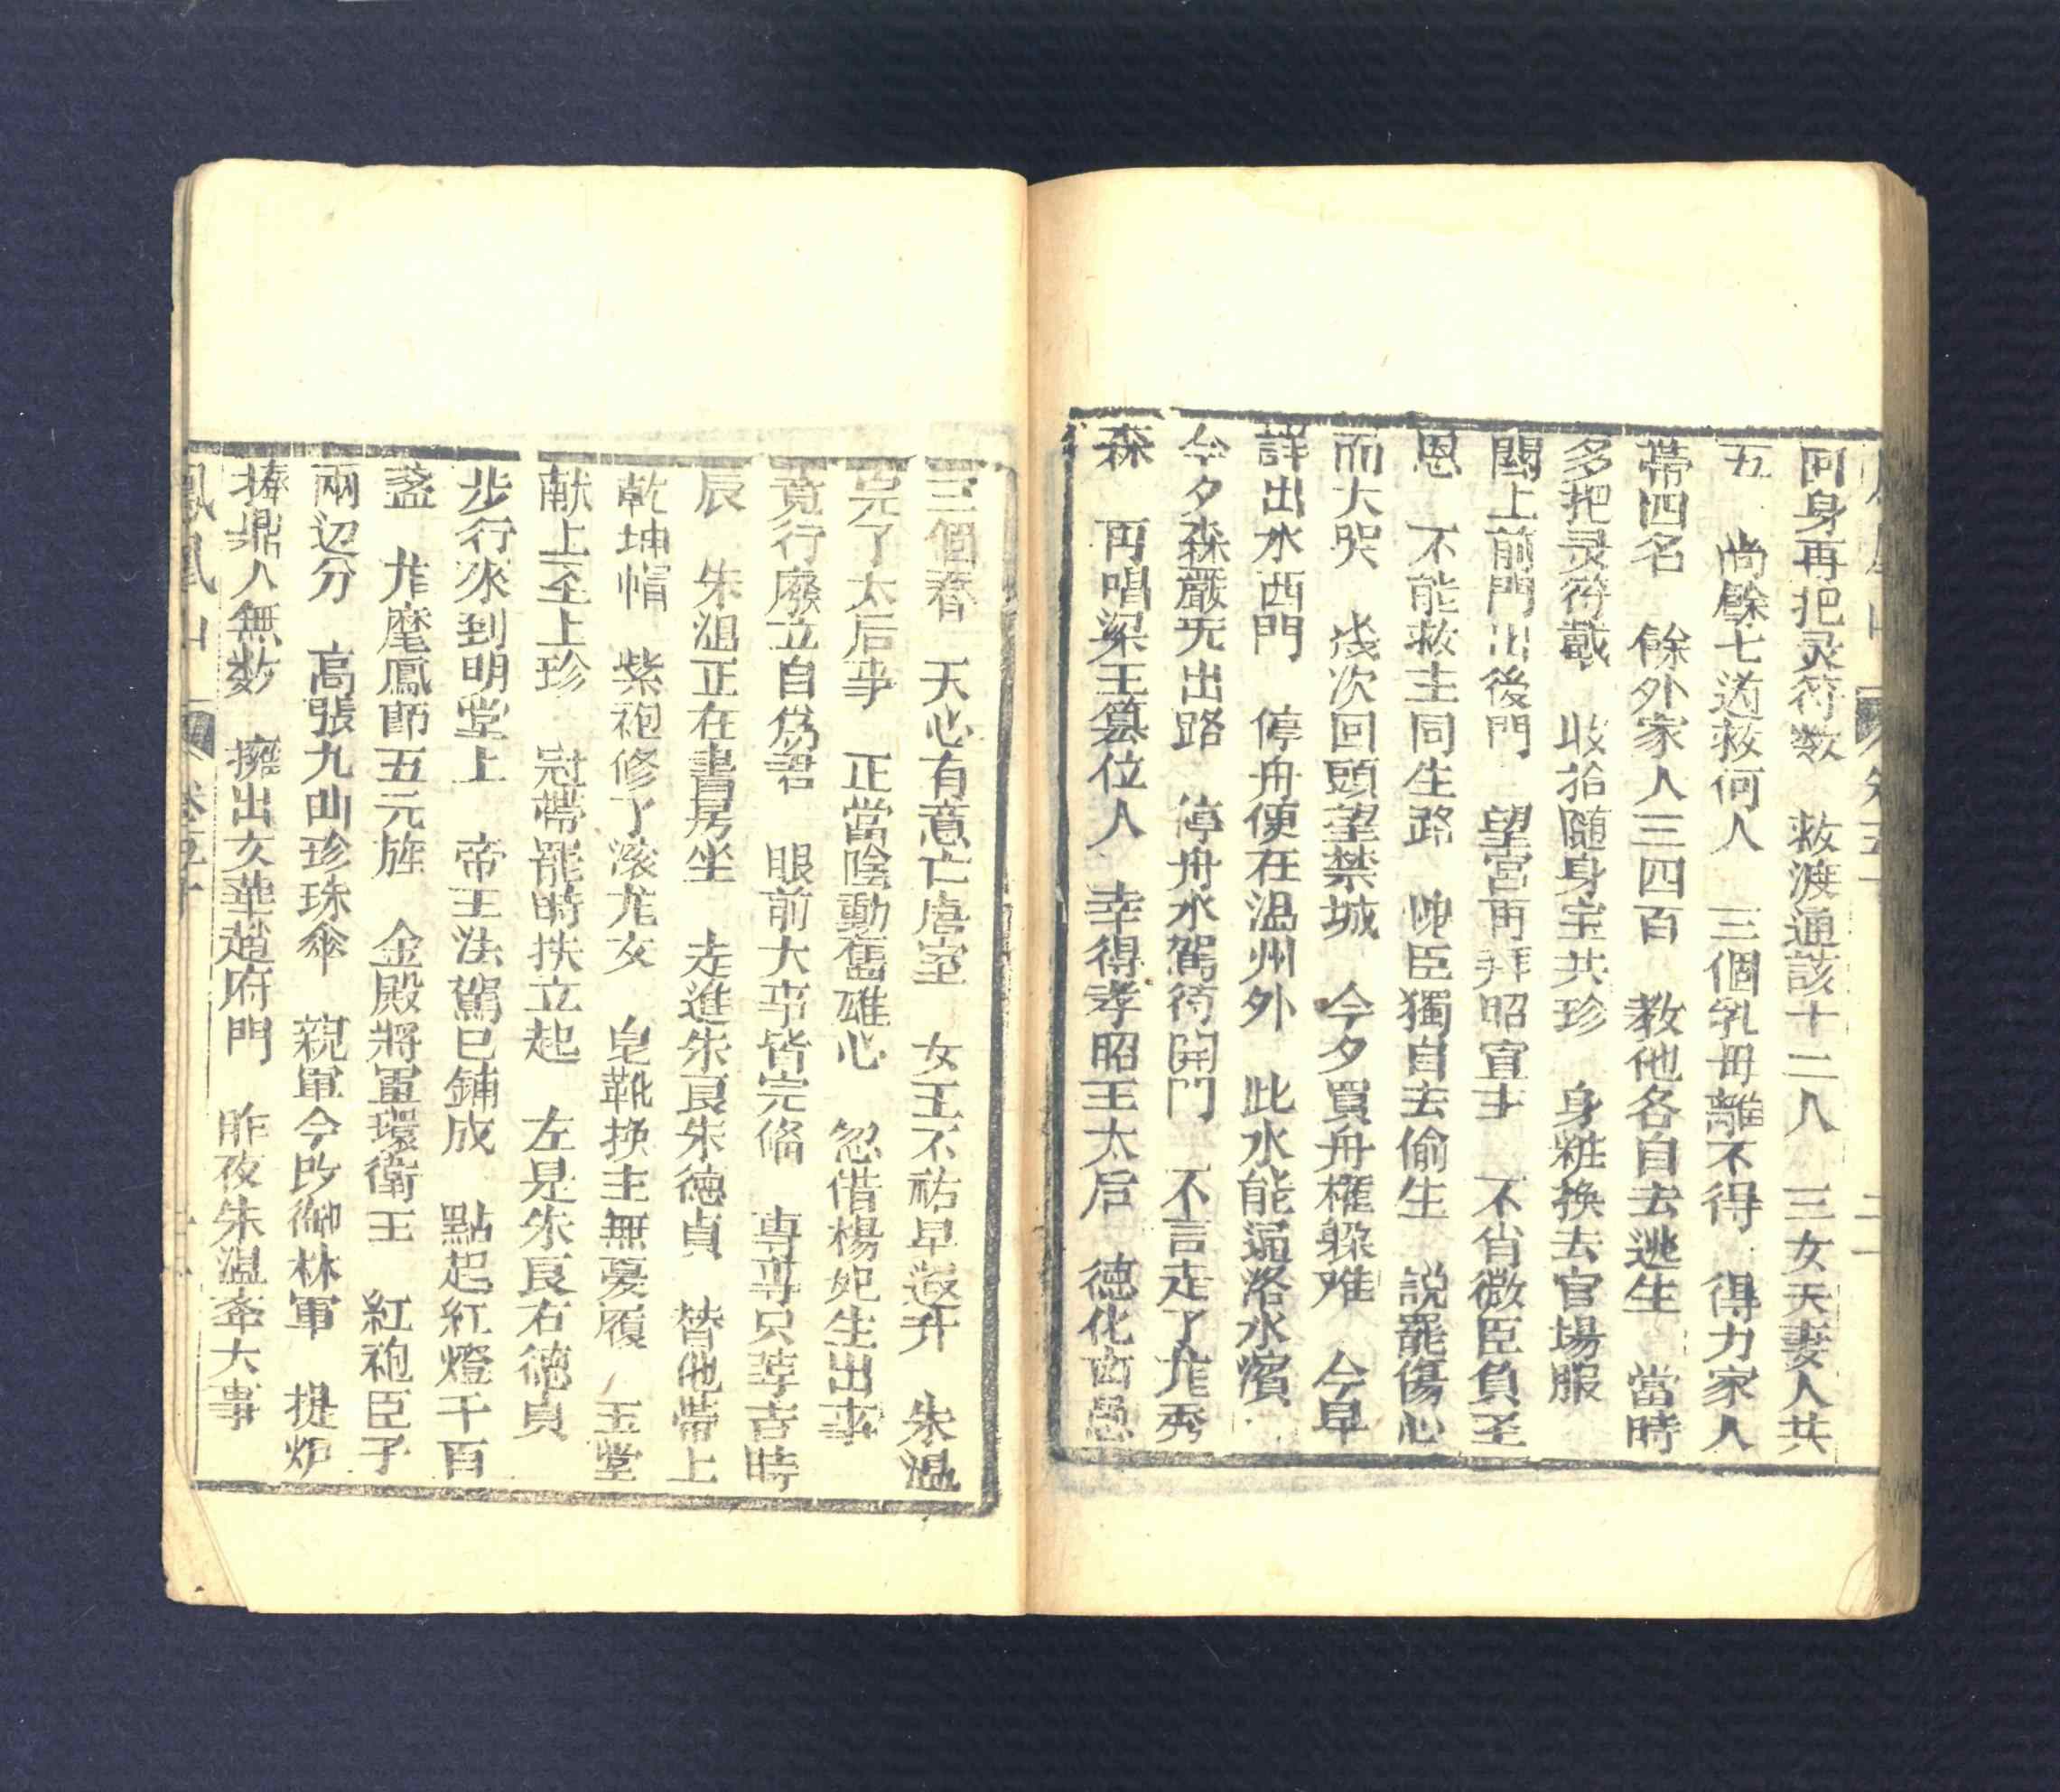 回身再把灵符数　救渡通該十二人　三女夭妻人共
五　尚餘七道救何人　三個乳母離不得　得力家人
帶四名　餘外家人三四百　教他各自去逃生　當時
多把灵符戴　收拾隨身宝共珍　身粧换去官塲服
閣上前門出後門　望宮再拜昭宣主　不肖微臣負圣
恩　不能救主同生路　臣獨自去偷生　説罷傷心
而大哭　次回頭望禁城　今夕買舟權躲难　今早
詳出水西門　停舟便在温州外　此水能通洛水濱
今夕森嚴无出路　停舟水駕待開門　不言走了尨秀
森　再唱梁王篡位人　幸得孝昭王太后　德化
三個春　天心有意亡唐室　女王不祐早遐升　朱温
完了太后亊　正當陰動舊雄心　忽借楊妃生出事
竟行廢立自爲君　眼前大亊皆完俻　専尋只䓁吉時
辰　朱温正在書房坐　走進朱良朱德貞　替他帶上
乾坤帽　紫袍修了滚尨女　皂靴换主無憂履　玉堂
献上至上珍　冠帶罷時扶立起　左是朱良右德貞
步行來到明堂上　帝王法駕已鋪成　點起紅燈千百
盏　尨麾鳳節五元旌　金殿將軍環衛王　紅袍臣子
兩边分　高張九曲珍珠傘　親軍今改御林軍　提炉
捧鼎人無数　擁出文華趙府門　昨夜朱温夲大事
鳳凰山　卷五十